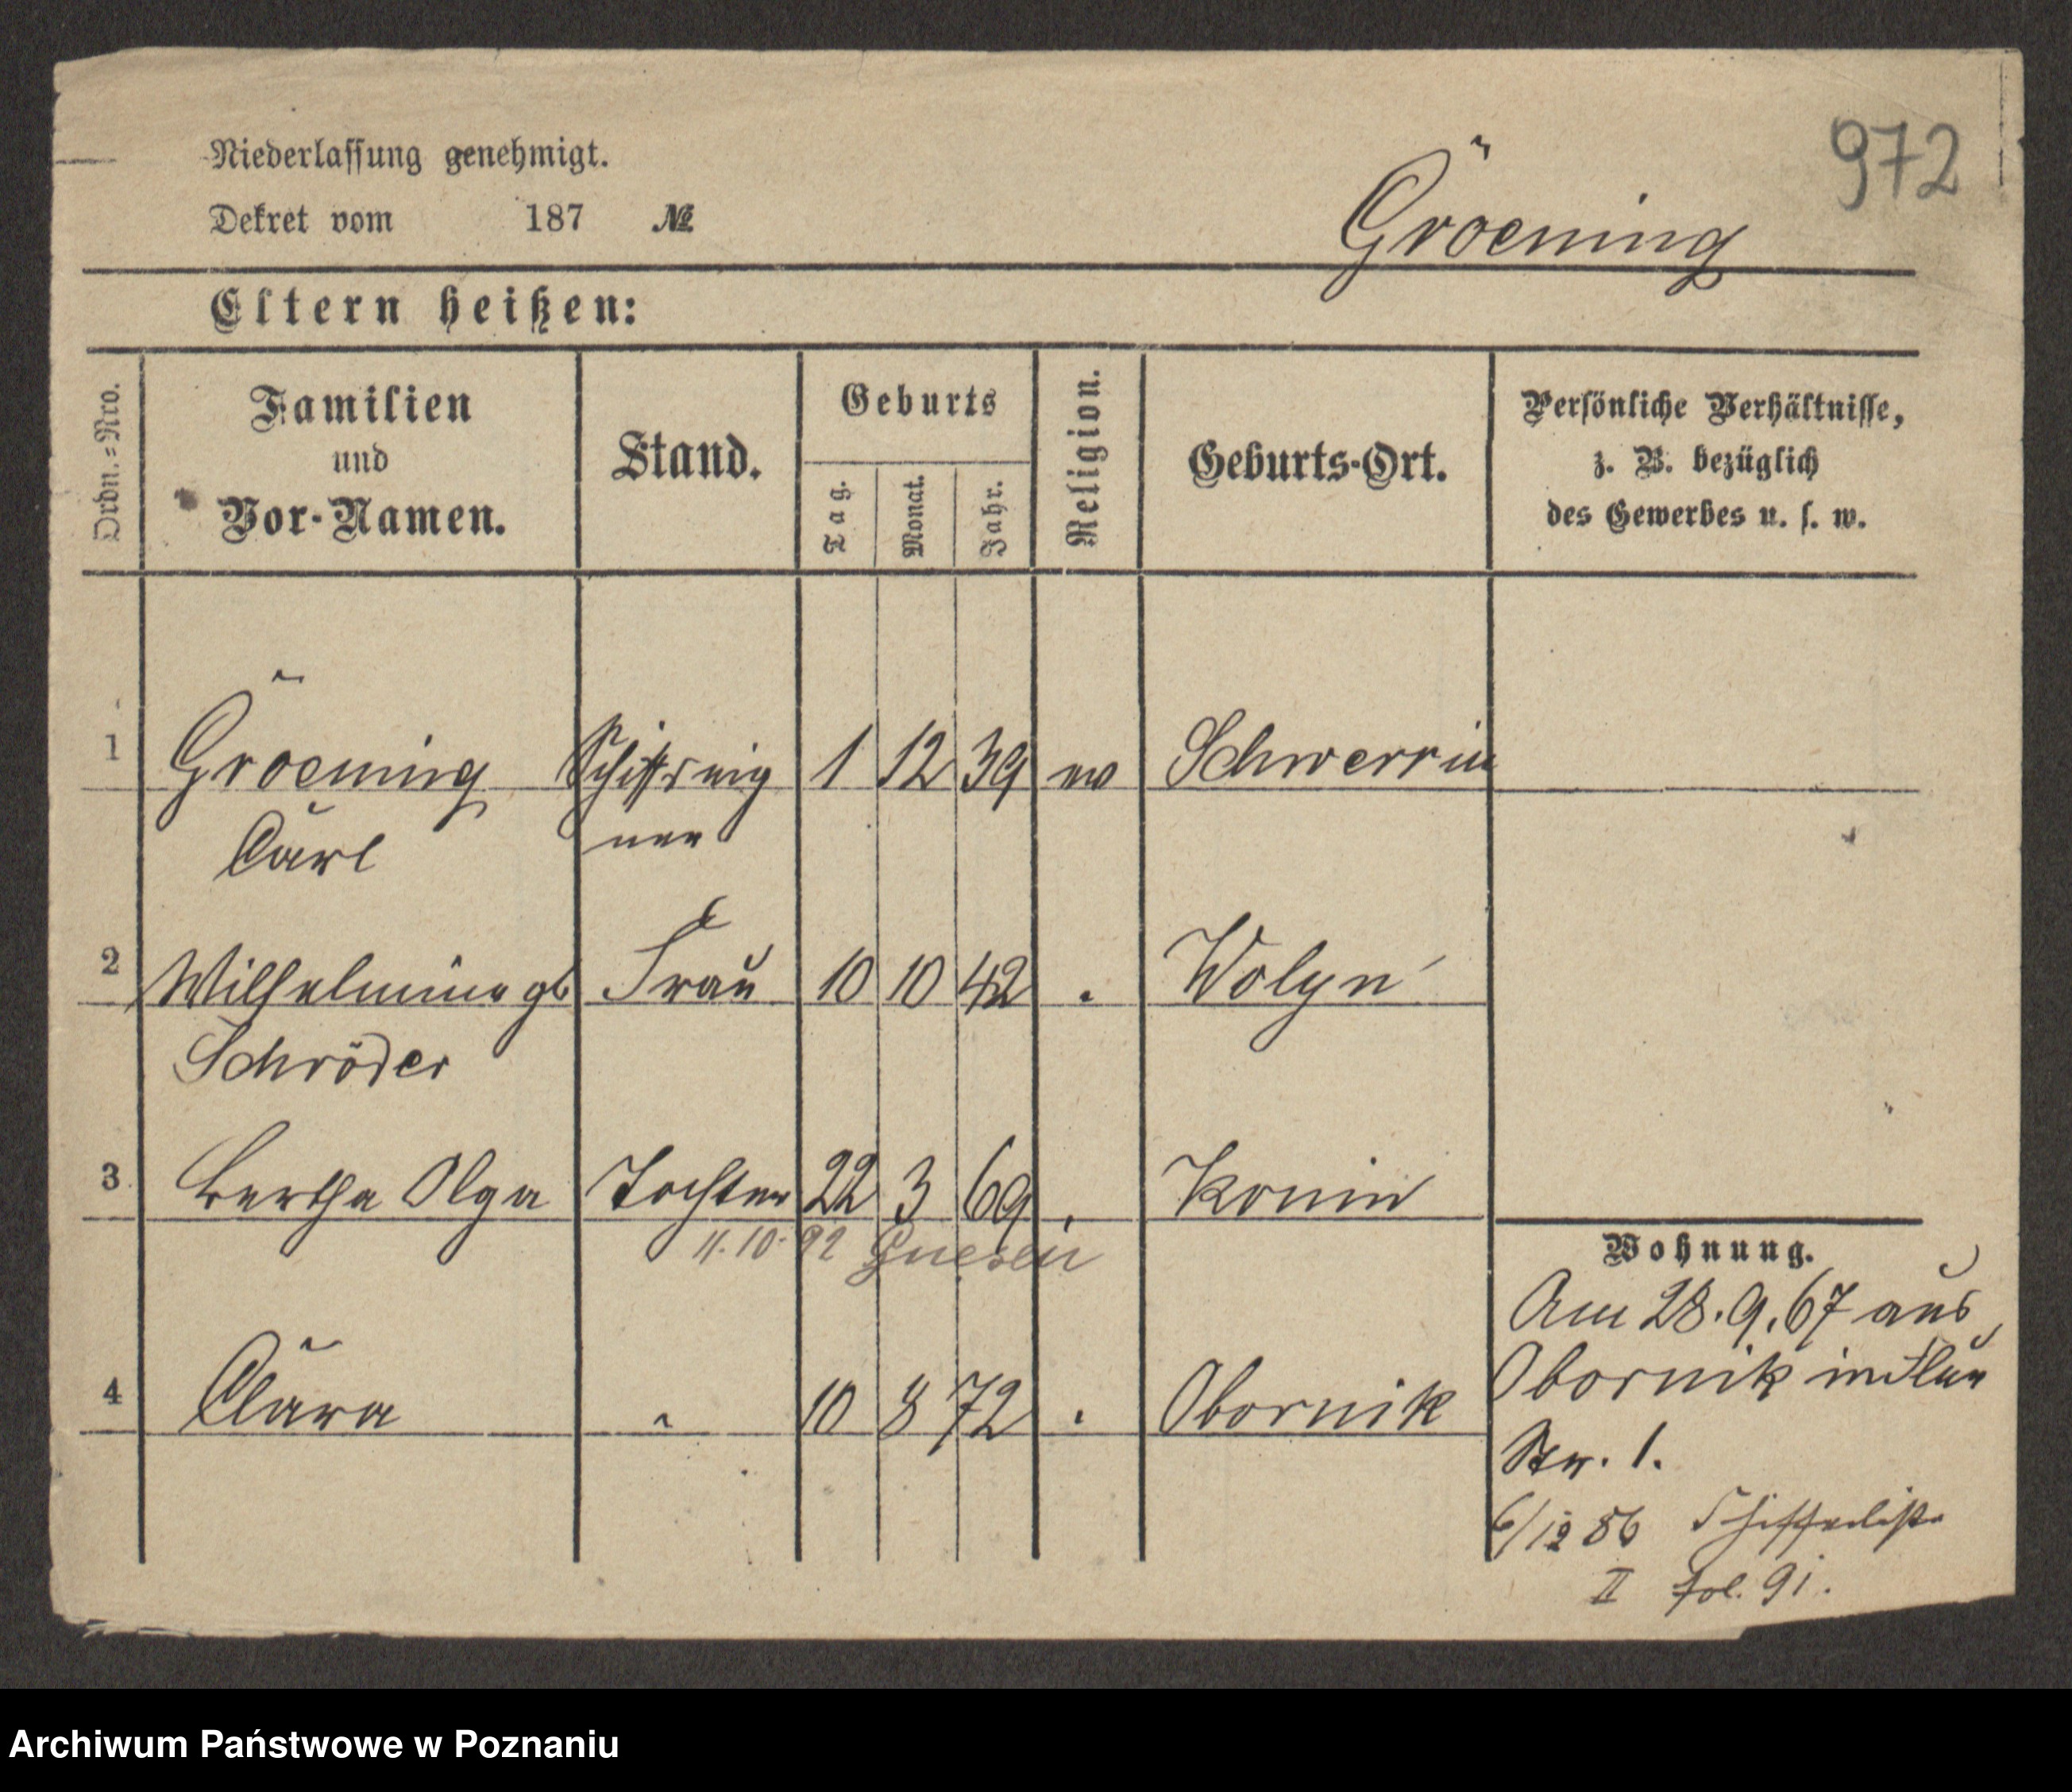 972
Niederlassung genehmigt.
Dekret vom 187 №
Gröening
Eltern heißen:
Ordn.=Nro.
Familien
und
Vor-Namen.
Stand.
Geburts
Tag.
Monat.
Jahr.
Religion.
Geburts-Ort.
Persönliche Verhältnisse,
z. B. bezüglich
des Gewerbes u. s. w.
1 Gröening Schiffseig 1 12 39 ev Schwerrin
Carl ner
2 Wilhelmine gb Frau 10 10 42 " Wolyn
Schröder
3 Bertha Olga Tochter 22 3 69 " Konin
11.10.92 Gnesen
4 Clara " 10 8 72 " Obornik
Wohnung.
Am 28.9.67 aus
Obornik
Str. 1.
6/12 86 Schifferliste
II fol. 91.
Archiwum Państwowe w Poznaniu